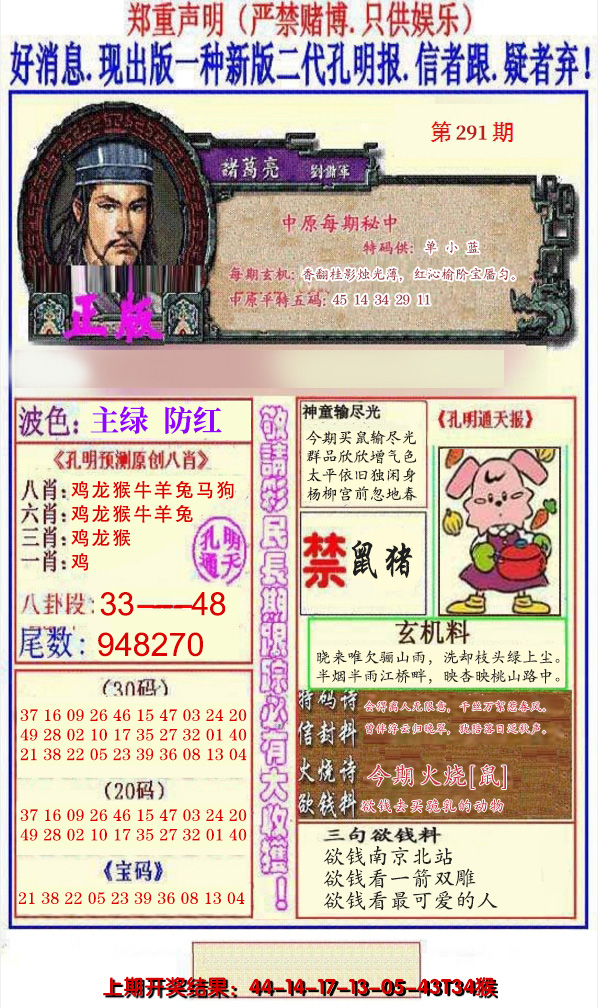 郑重声明（严禁赌博.只供娱乐）
好消息.现出版一种新版二代孔明报.信者跟.疑者弃!
第291期
諸葛亮 劉備軍
中原每期秘中
特码供：单小蓝
每期玄机：香翻桂影烛光薄，红沁榆阶宝靥匀。
中原平特五码：45 14 34 29 11
正版
波色：主绿 防红
《孔明预测原创八肖》
八肖：鸡龙猴牛羊兔马狗
六肖：鸡龙猴牛羊兔
三肖：鸡龙猴
一肖：鸡
孔明
通天
八卦段：33——48
尾数：948270
（30码）
37 16 09 26 46 15 47 03 24 20
49 28 02 10 17 35 27 32 01 40
21 38 22 05 23 39 36 08 13 04
（20码）
37 16 09 26 46 15 47 03 24 20
49 28 02 10 17 35 27 32 01 40
《宝码》
21 38 22 05 23 39 36 08 13 04
敬請彩民長期跟踪必有大收獲！
神童输尽光
今期买鼠输尽光
群品欣欣增气色
太平依旧独闲身
杨柳宫前忽地春
《孔明通天报》
禁 鼠猪
玄机料
晓来唯欠骊山雨，洗却枝头绿上尘。
半烟半雨江桥畔，映杏映桃山路中。
特码诗 会得离人无限意，千丝万絮惹春风。
信封料 曾伴浮云归晚翠，犹陪落日泛秋声。
火烧诗 今期火烧[鼠]
欲钱料 欲钱去买跪乳的动物
三句欲钱料
欲钱南京北站
欲钱看一箭双雕
欲钱看最可爱的人
上期开奖结果：44-14-17-13-05-43T34猴